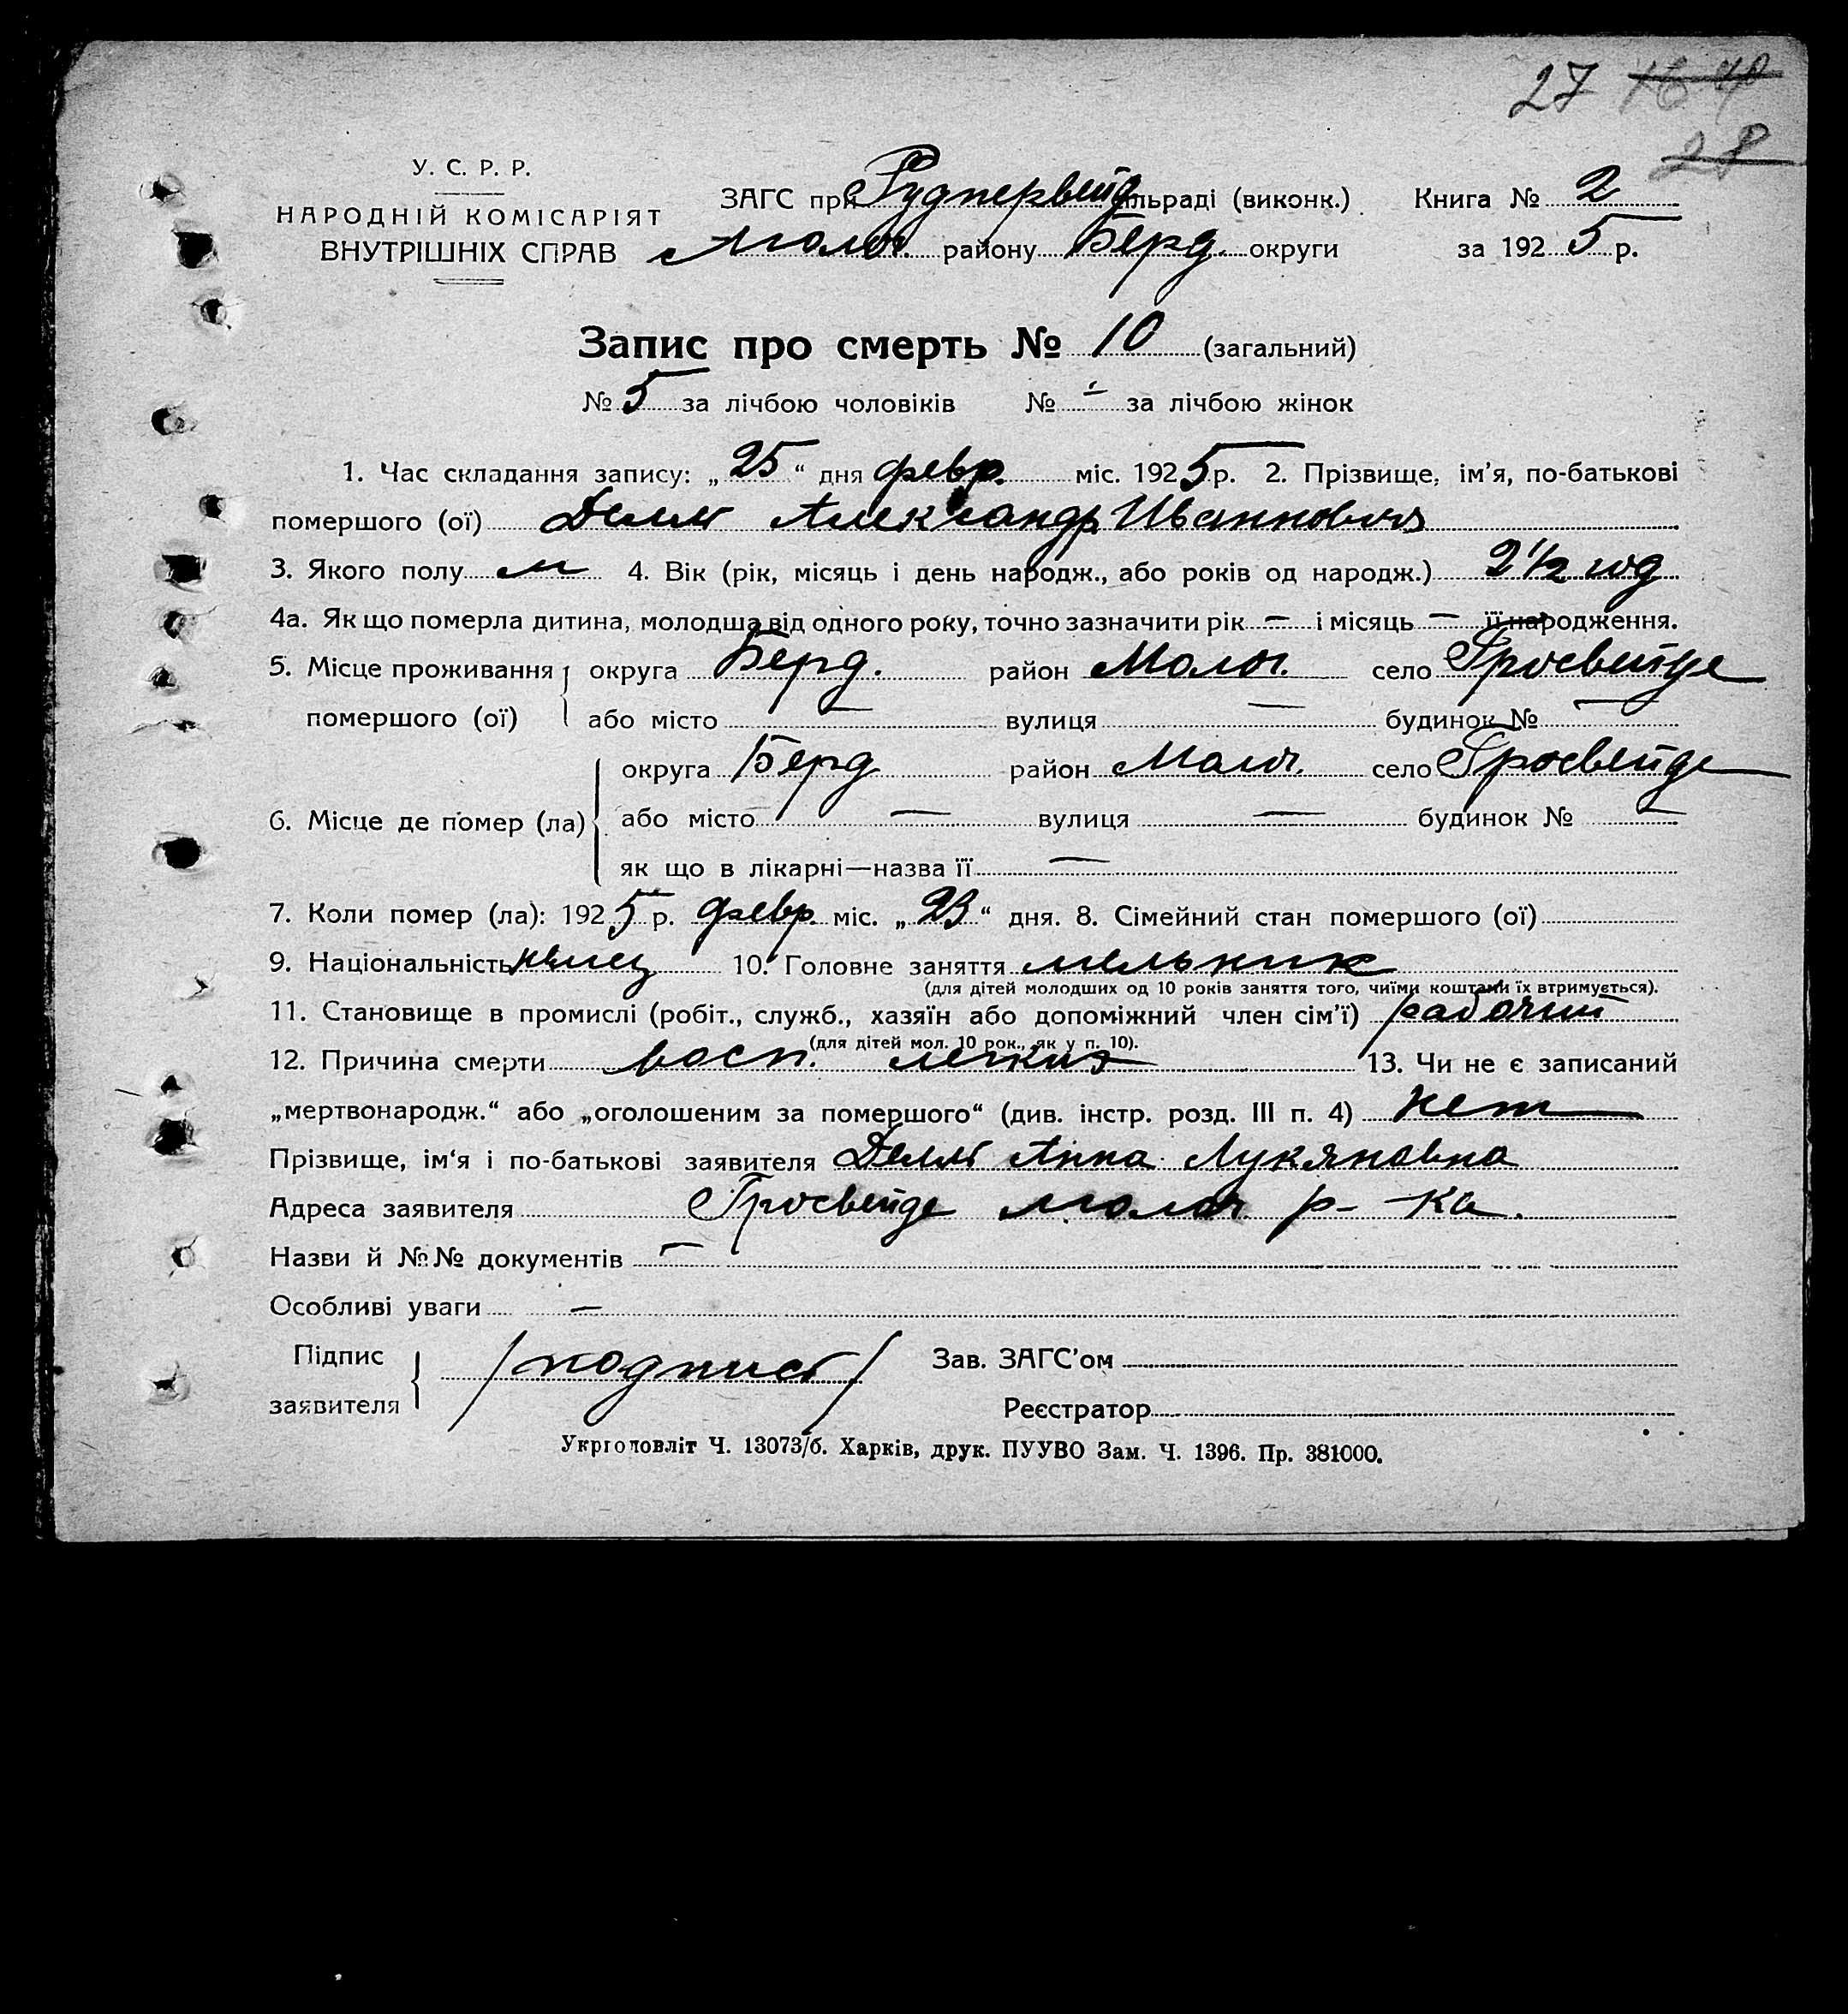 27 16 40
28
У. С. Р. Р.
НАРОДНІЙ КОМІСАРІЯТ
ВНУТРІШНІХ СПРАВ
ЗАГС при Рудпервейд ільраді (виконк.) Книга № 2
Молоч. району Берд. округи за 1925 р.
Запис про смерть № 10 (загальний)
№ 5 за лічбою чоловіків № - за лічбою жінок
1. Час складання запису: „25“ дня февр. міс. 1925 р. 2. Прізвище, ім'я, по-батькові
помершого (ої) Делль Александр Иванновичъ
3. Якого полу м 4. Вік (рік, місяць і день народж., або років од народж.) 2 1/2 год
4а. Як що померла дитина, молодша від одного року, точно зазначити рік — і місяць — її народження.
5. Місце проживання округа Берд. район Молоч. село Гросвейде
помершого (ої) або місто — вулиця — будинок № —
округа Берд район Молоч. село Гросвейде
6. Місце де помер (ла) або місто — вулиця — будинок № —
як що в лікарні—назва її —
7. Коли помер (ла): 1925 р. февр. міс. „23“ дня. 8. Сімейний стан помершого (ої)
9. Національність немец 10. Головне заняття мельник
(для дітей молодших од 10 років заняття того, чиїми коштами їх втримується).
11. Становище в промислі (робіт., служб., хазяїн або допоміжний член сім'ї) рабочий
(для дітей мол. 10 рок., як у п. 10).
12. Причина смерти восп. легких 13. Чи не є записаний
„мертвонародж.“ або „оголошеним за помершого“ (див. інстр. розд. III п. 4) нет
Прізвище, ім'я і по-батькові заявителя Делль Анна Лукяновна
Адреса заявителя Гросвейде молоч р-ка.
Назви й №№ документів —
Особливі уваги —
Підпис
заявителя /подпись/ Зав. ЗАГС'ом
Реєстратор
Укрголовліт Ч. 13073/б. Харків, друк. ПУУВО Зам. Ч. 1396. Пр. 381000.